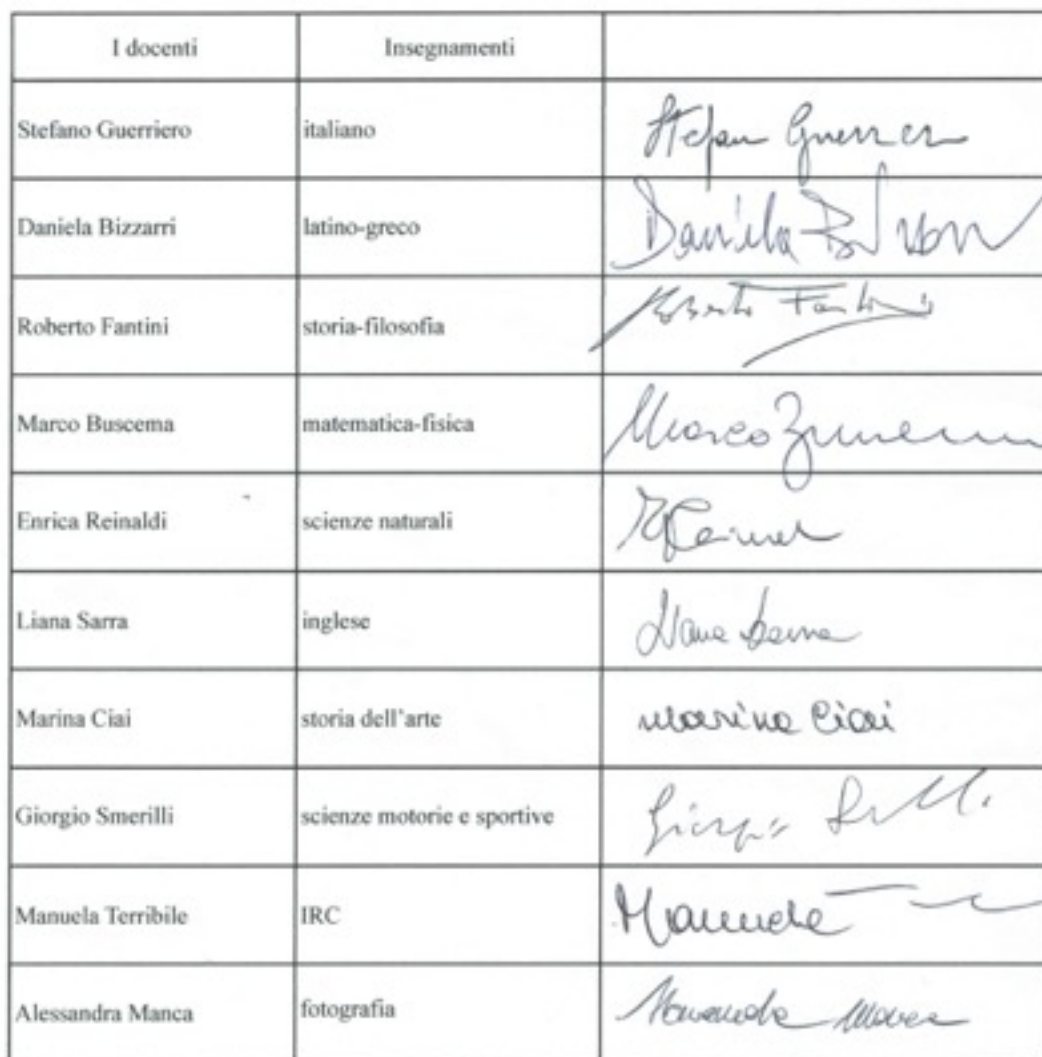 I docenti Insegnamenti
Stefano Guerriero italiano Stefano Guerriero
Daniela Bizzarri latino-greco Daniela
Roberto Fantini storia-filosofia Roberto Fantini
Marco Buscema matematica-fisica Marco
Enrica Reinaldi scienze naturali
Liana Sarra inglese Liana Sarra
Marina Ciai storia dell'arte Marina Ciai
Giorgio Smerilli scienze motorie e sportive Giorgio
Manuela Terribile IRC Manuela
Alessandra Manca fotografia